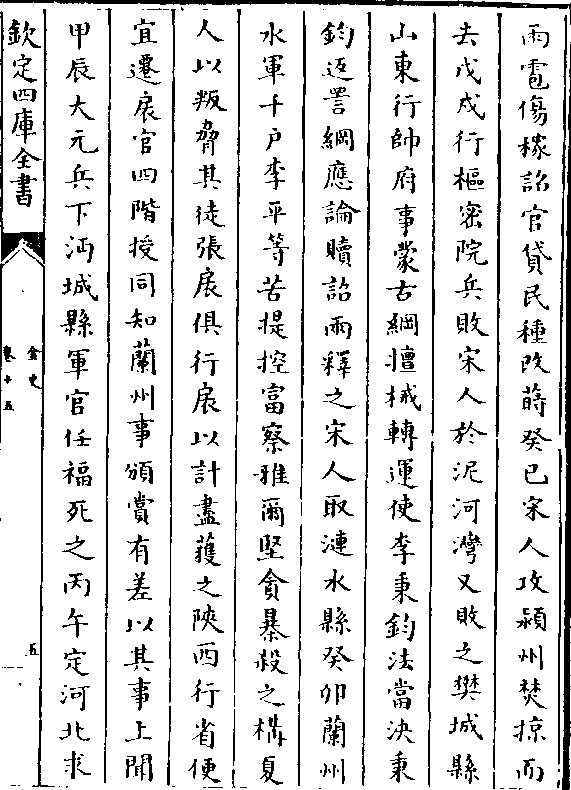 雨雹傷稼詔官貸民種改蒔癸巳宋人攻潁州焚掠而
去戊戌行樞密院兵敗宋人於泥河灣又敗之樊城縣
山東行帥府事蒙古綱擅械轉運使李秉鈞法當決秉
鈞返詈綱應論贖詔兩釋之宋人取漣水縣癸卯蘭州
水軍千戶李平等苦提控富察雅爾堅貪暴殺之構夏
人以叛脅其徒張扆俱行扆以計盡獲之陝西行省便
宜遷扆官四階授同知蘭州事頒賞有差以其事上聞
甲辰大元兵下沔城縣軍官任福死之丙午定河北求
欽定四庫全書
金史
卷十五
五